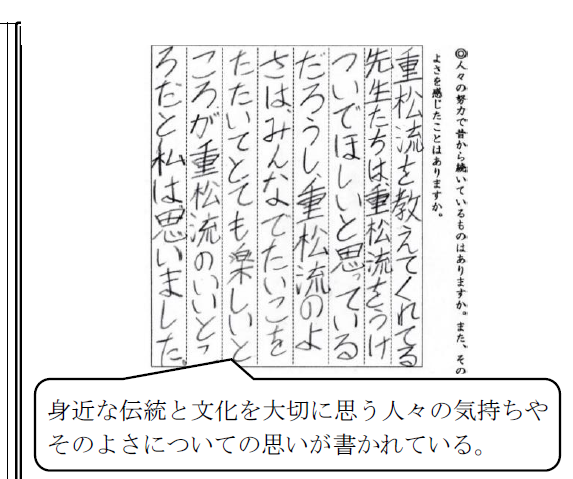 ◎人々の努力で昔から続いているものはありますか。また、その
よさを感じたことはありますか。
重松流を教えてくれてる
先生たちは、重松流をうけ
ついでほしいと思っている
だろうし、重松流のよ
さはみんなでたいこを
たたいてとても楽しいと
ころが重松流のいいとこ
ろだと私は思いました。
身近な伝統と文化を大切に思う人々の気持ちや
そのよさについての思いが書かれている。